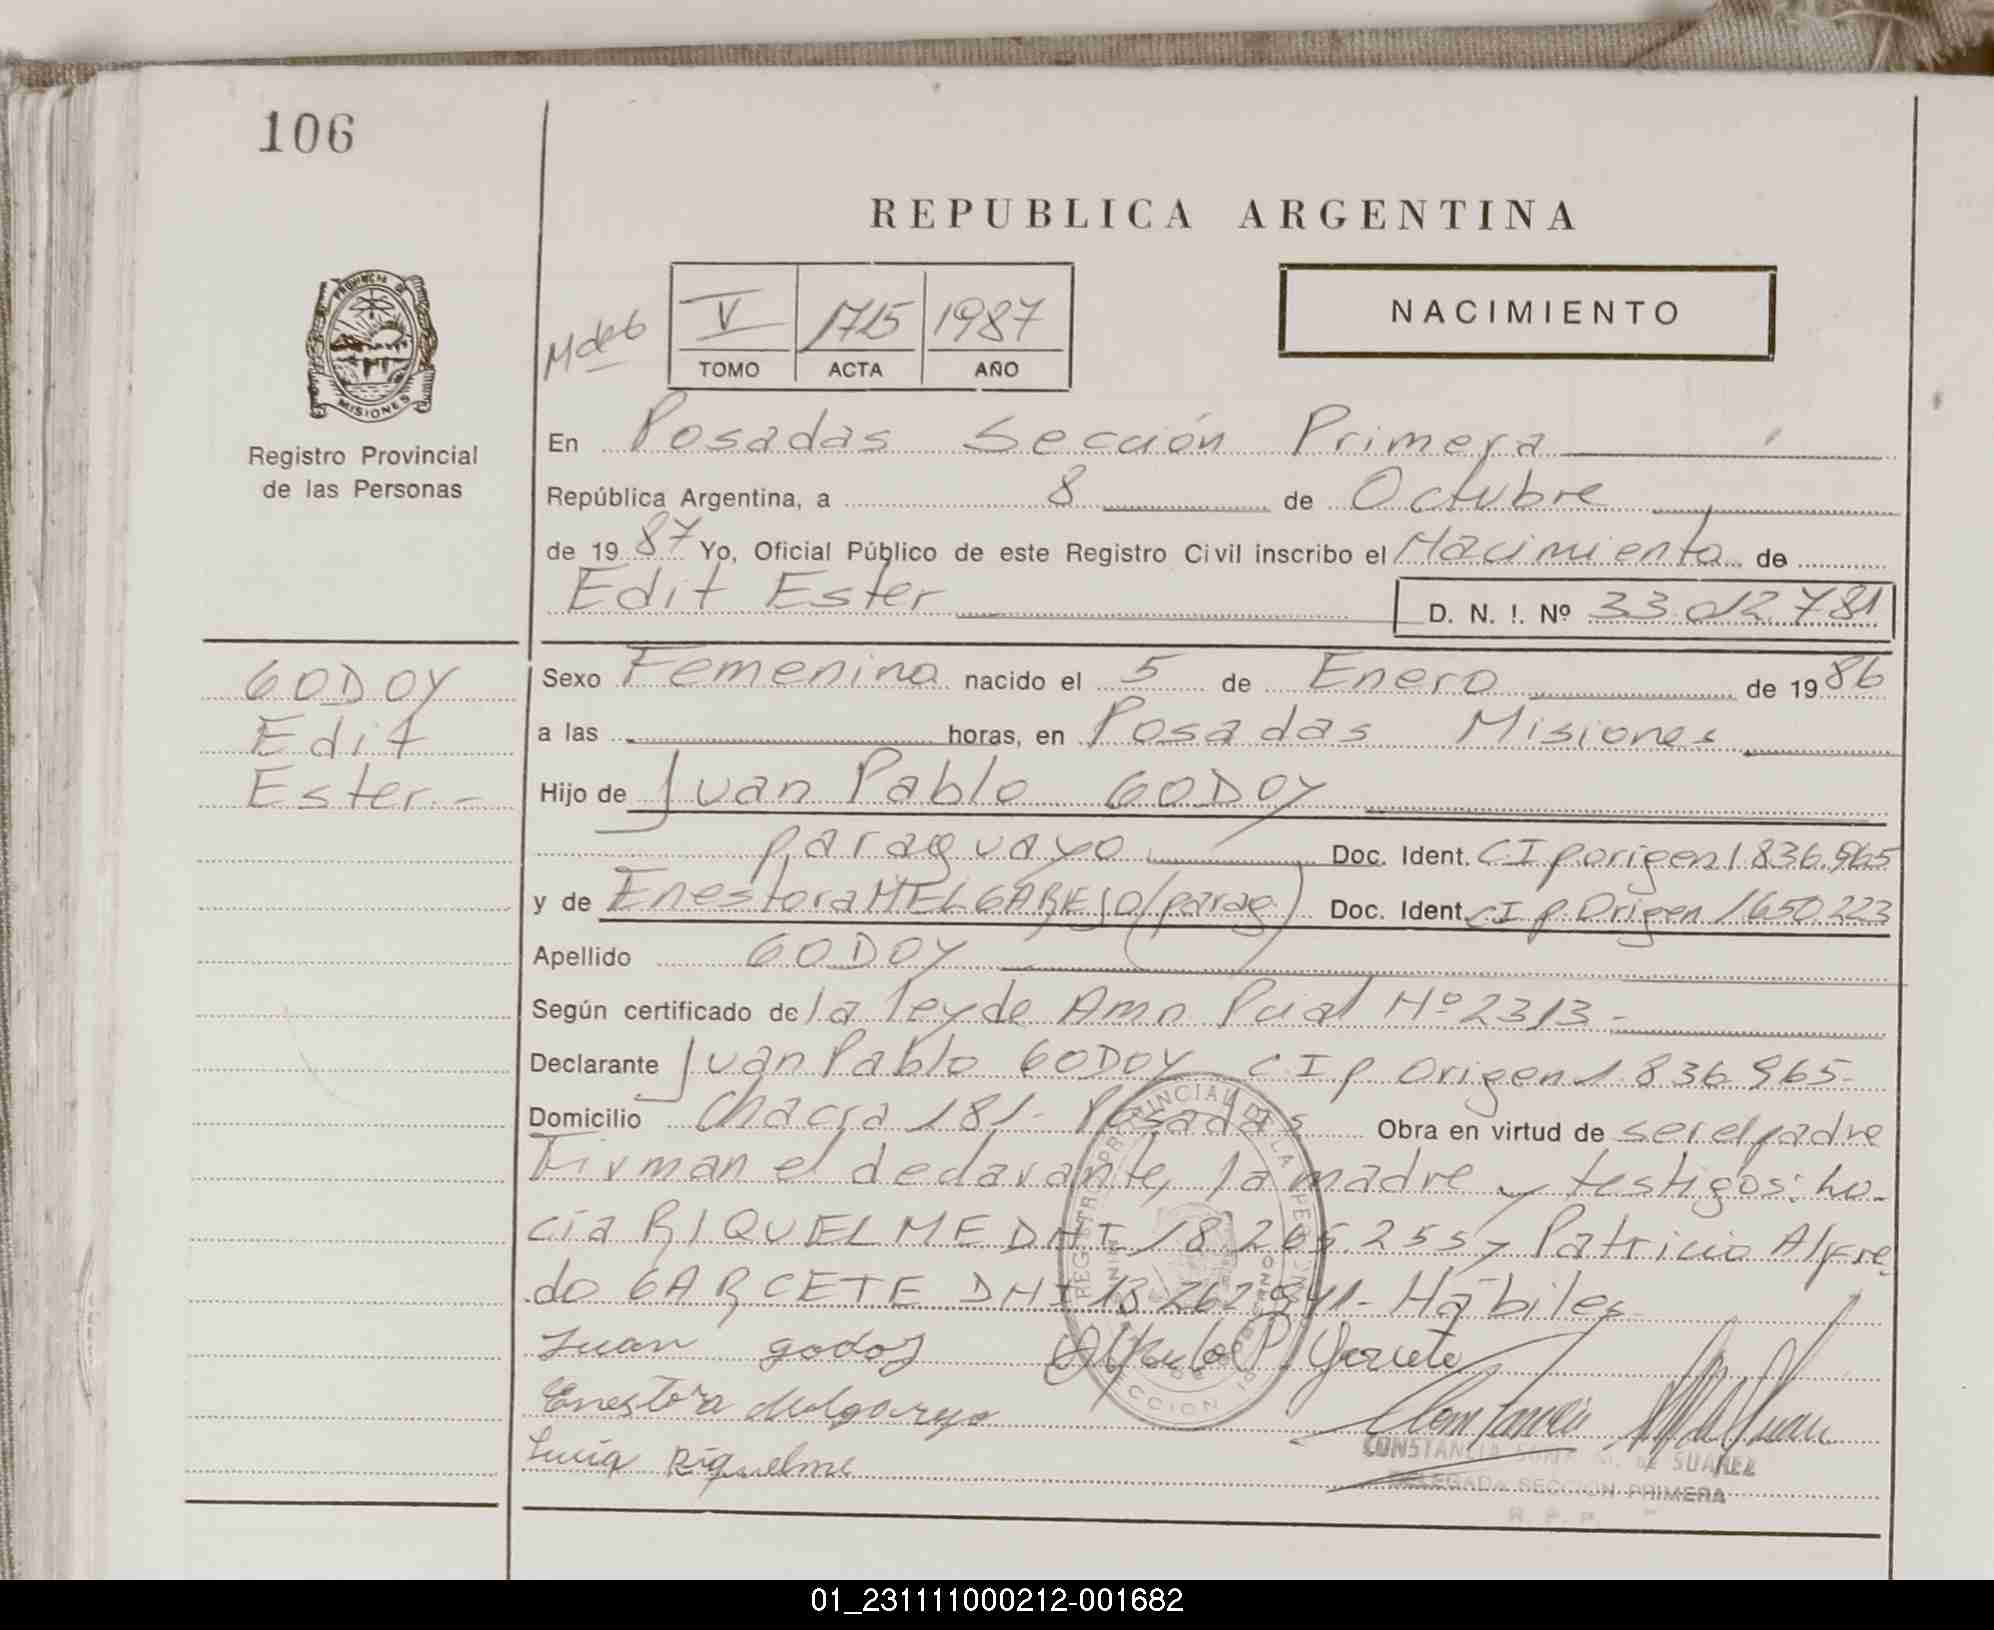 106
REPUBLICA ARGENTINA
PROVINCIA DE
MISIONES
Registro Provincial
de las Personas
V 1715 1987
TOMO ACTA AÑO
NACIMIENTO
En Posadas Sección Primera
República Argentina, a 8 de Octubre
de 19 87 Yo, Oficial Público de este Registro Civil inscribo el Nacimiento de
Edit Ester D. N. I. Nº 33.012.781
GODOY
Edit
Ester.-
Sexo Femenino nacido el 5 de Enero de 19 86
a las horas, en Posadas Misiones
Hijo de Juan Pablo GODOY
paraguayo Doc. Ident. CI p origen 1.836.965
y de Enestora MELGAREJO (parag) Doc. Ident. CI p. Origen 1650223
Apellido GODOY
Según certificado de la ley de Amn Pcial Nº 2313-
Declarante Juan Pablo GODOY C I p Origen 1.836.965-
Domicilio Chacra 181- Posadas Obra en virtud de ser el padre
Firman el declarante, la madre y testigos: Lu-
cía RIQUELME DNI 18.265.255 y Patricio Alfre-
do GARCETE DNI 13.262.841- Hábiles
Juan godoy P. Garcete
Enestora Melgarejo
Lucia Riquelme
CONSTANCIA DE SUAREZ
DELEGADA SECCION PRIMERA
R. P. P.
01_231111000212-001682